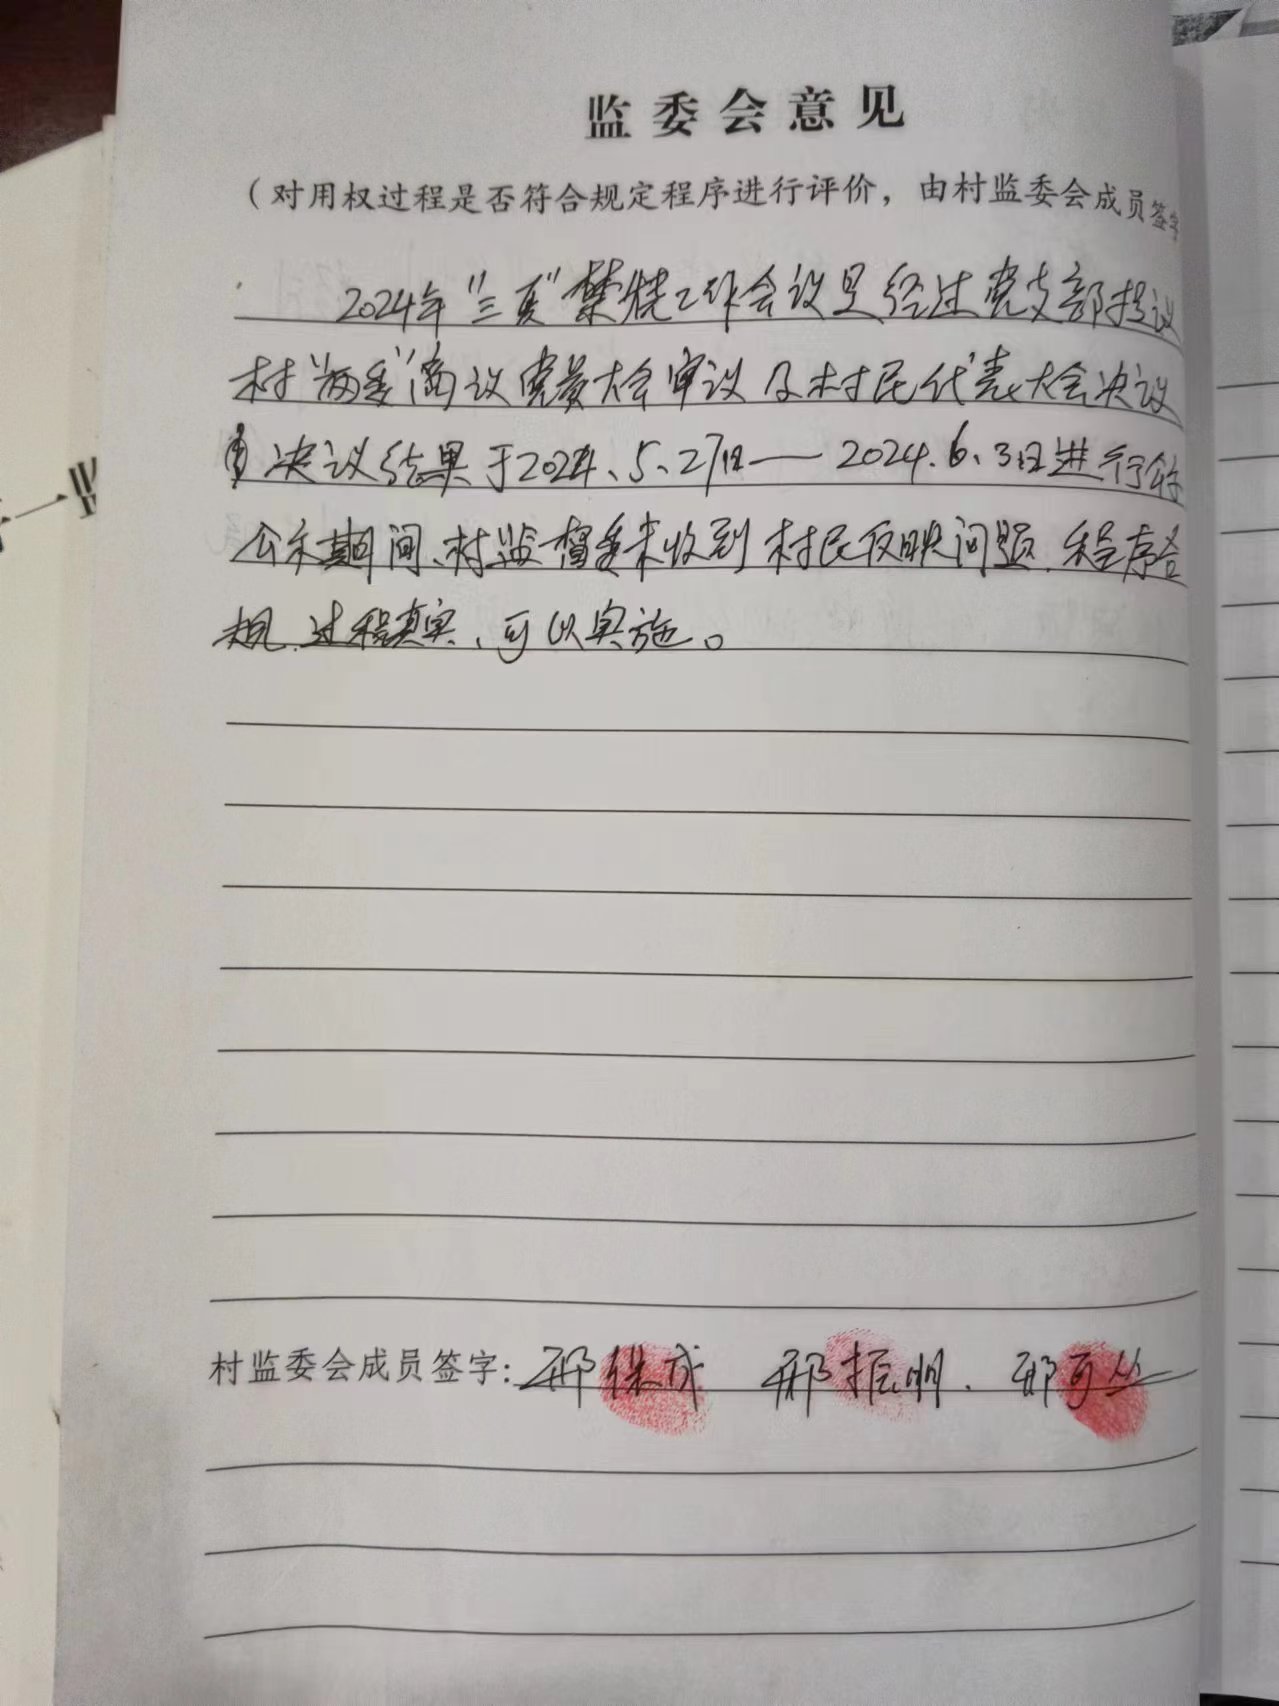 监委会意见
（对用权过程是否符合规定程序进行评价，由村监委会成员签字
2024年“三夏”禁烧工作会议是经过党支部提议
村“两委”商议党员大会审议及村民代表大会决议
决议结果于2024、5、27日——2024.6、3日进行
公示期间、村监督委未收到村民反映问题.程序合
规.过程真实、可以实施。
村监委会成员签字：邢成 邢振明. 邢
一监